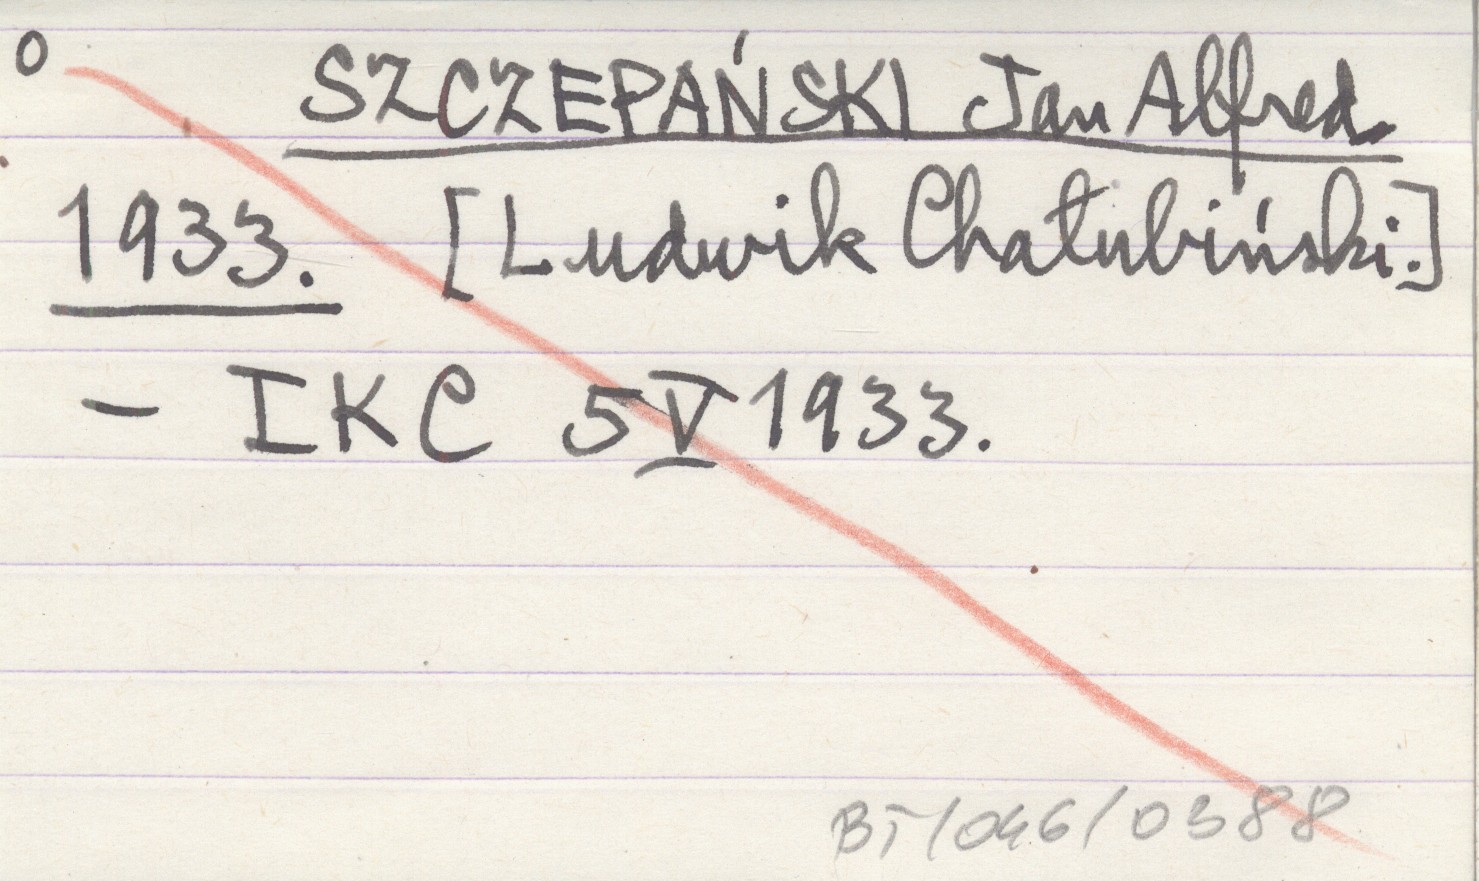 O SZCZEPAŃSKI Jan Alfred
1933. [Ludwik Chałubiński.]
- IKC 5 V 1933.
BT/046/0388